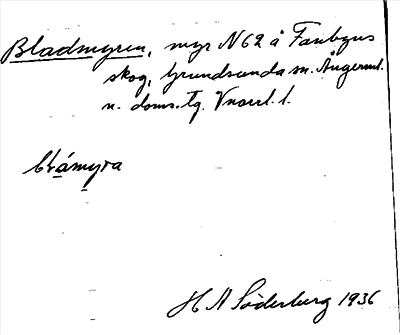 Bladmyren, myr N 62 å Fanbyns
skog, Grundsunda sn. Ångerml.
n. doms. tg. Vnorrl. l.
blámyra
H A Söderberg 1936